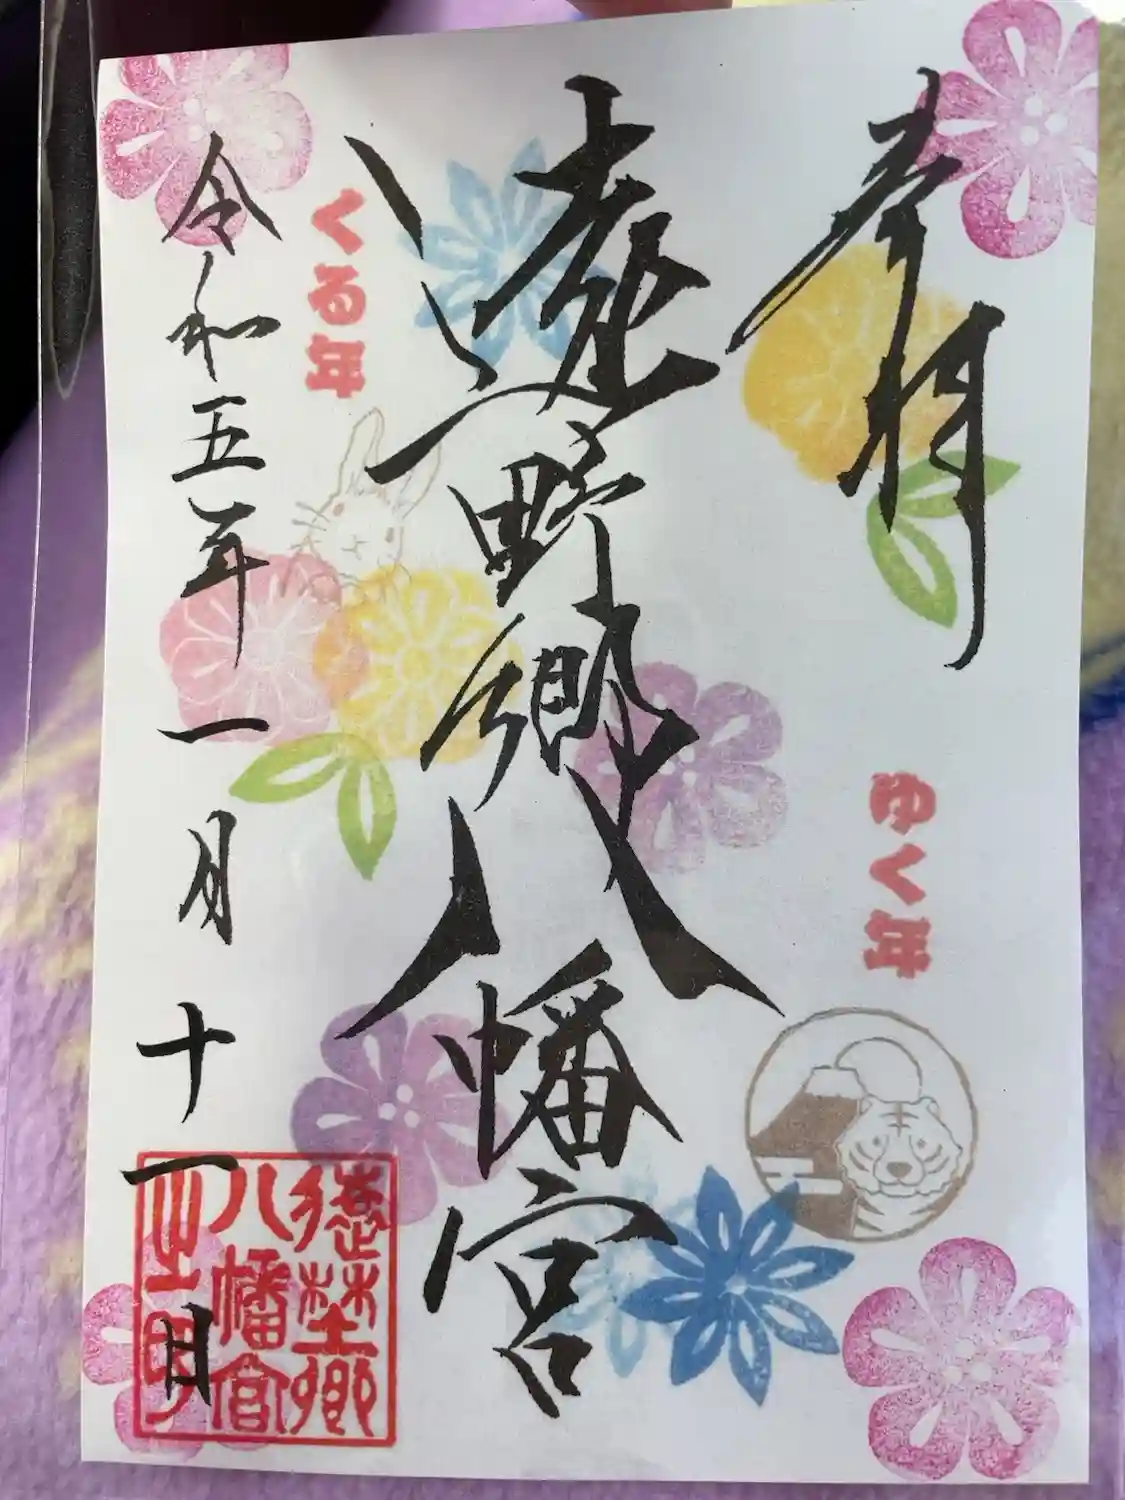 奉拝
ゆく年
遠野郷八幡宮
くる年
令和五年一月十一日
遠埜郷
八幡宮
之印